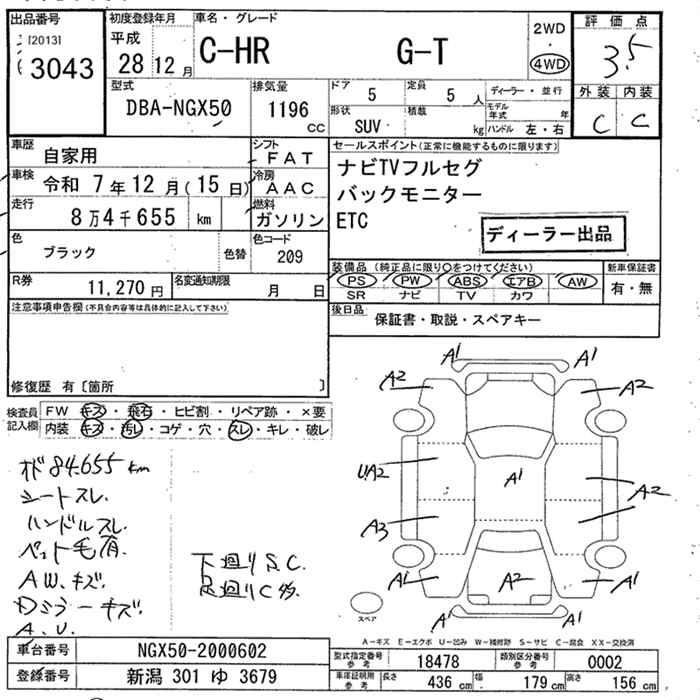 出品番号
[2013]
3043
初度登録年月
平成
28 12 月
車名・グレード
C-HR G-T
2WD
・
4WD
評価点
3.5
外装 内装
C C
型式
DBA-NGX50
排気量
1196 cc
ドア
5
定員
5 人
形状
SUV
積載
kg
ディーラー・並行
モデル年式 年
ハンドル 左・右
車歴
自家用
シフト
FAT
車検
令和 7年 12月 (15日)
冷房
AAC
走行
8万4千655 km
燃料
ガソリン
色
ブラック 色替
色コード
209
R券
11,270 円
名変通知期限
月 日
セールスポイント(正常に機能するものに限ります)
ナビTVフルセグ
バックモニター
ETC
ディーラー出品
装備品 (純正品に限り○をつけてください)
PS PW ABS エアB AW
SR ナビ TV カワ
新車保証書
有・無
後日品
保証書・取説・スペアキー
注意事項申告欄(不具合内容等は具体的に記入して下さい)
修復歴 有〔箇所 〕
検査員記入欄
FW キズ・飛石・ヒビ割・リペア跡・×要
内装 キズ・汚レ・コゲ・穴・スレ・キレ・破レ
オド84.655km
シートスレ.
ハンドルスレ.
ペット毛有.
AW.キズ.
Dミラーキズ.
A.U.
下廻りS.C.
足廻りC多.
A1 A1
A2 A2
UA2 A1 A2
A3
A1 A2 A1
A1 A1
スペア
A－キズ E－エクボ U－凹み W－補修跡 S－サビ C－腐食 XX－交換済
車台番号
NGX50-2000602
登録番号
新潟 301 ゆ 3679
型式指定番号
参考
18478
類別区分番号
参考
0002
車体証明用
参考
長さ 436 cm 幅 179 cm 高さ 156 cm